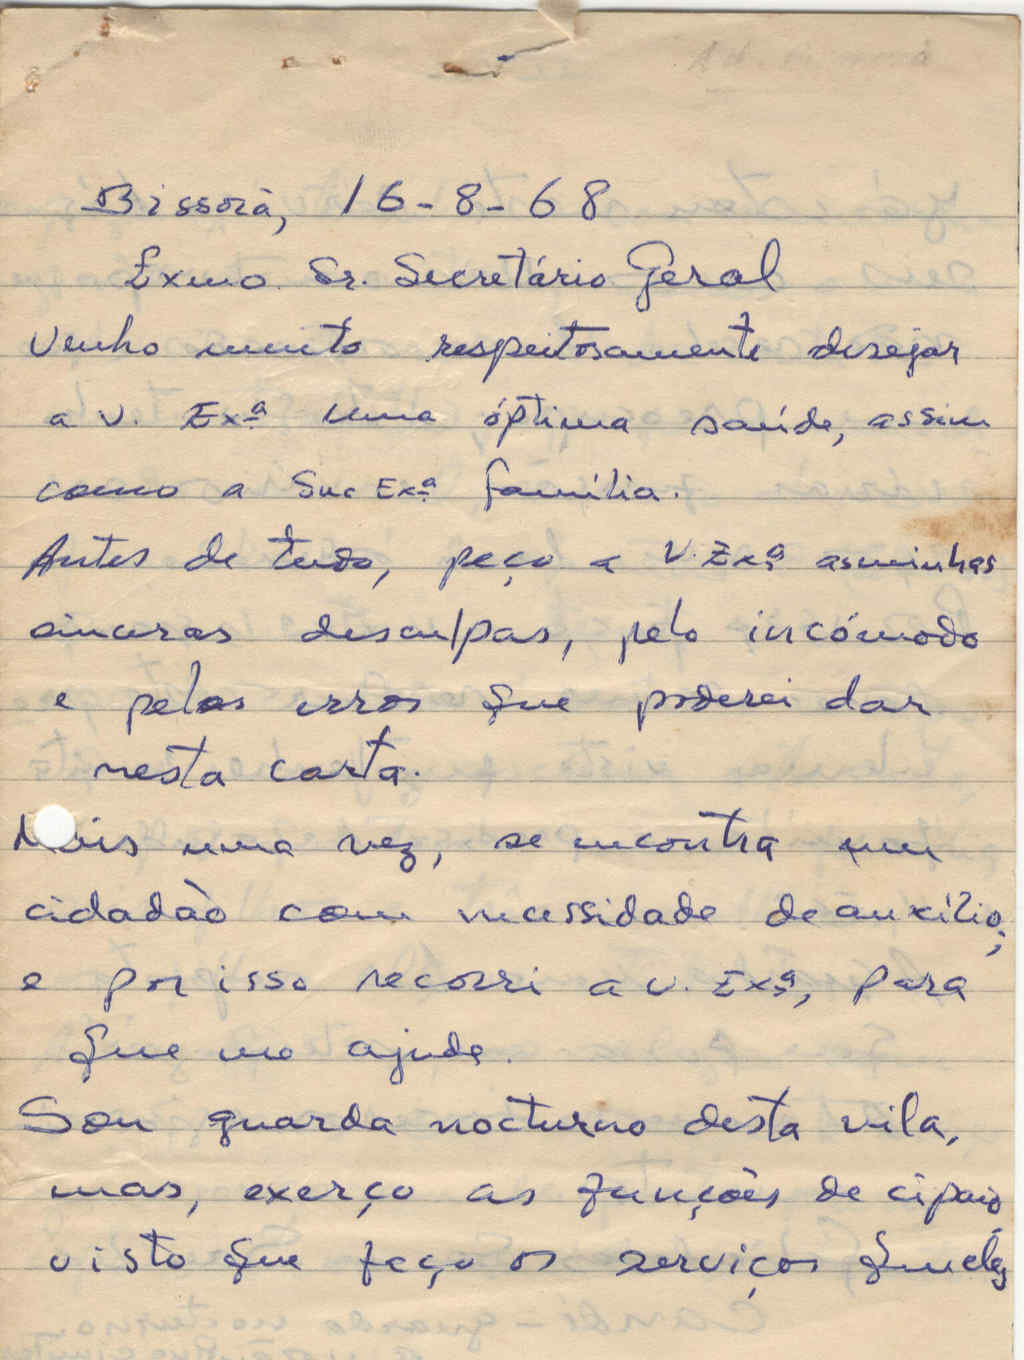 Bissorã, 16-8-68
Exmo. Sr. Secretário Geral
Venho muito respeitosamente desejar
a V. Exª uma óptima saúde, assim
como a Sua Exª família.
Antes de tudo, peço a V. Exª as minhas
sinceras desculpas, pelo incómodo
e pelos erros que poderei dar
nesta carta.
Mais uma vez, se encontra um
cidadão com necessidade de auxílio;
e por isso recorri a V. Exª, para
que me ajude.
Sou guarda nocturno desta vila,
mas, exerço as funções de cipaio
visto que faço os serviços queles